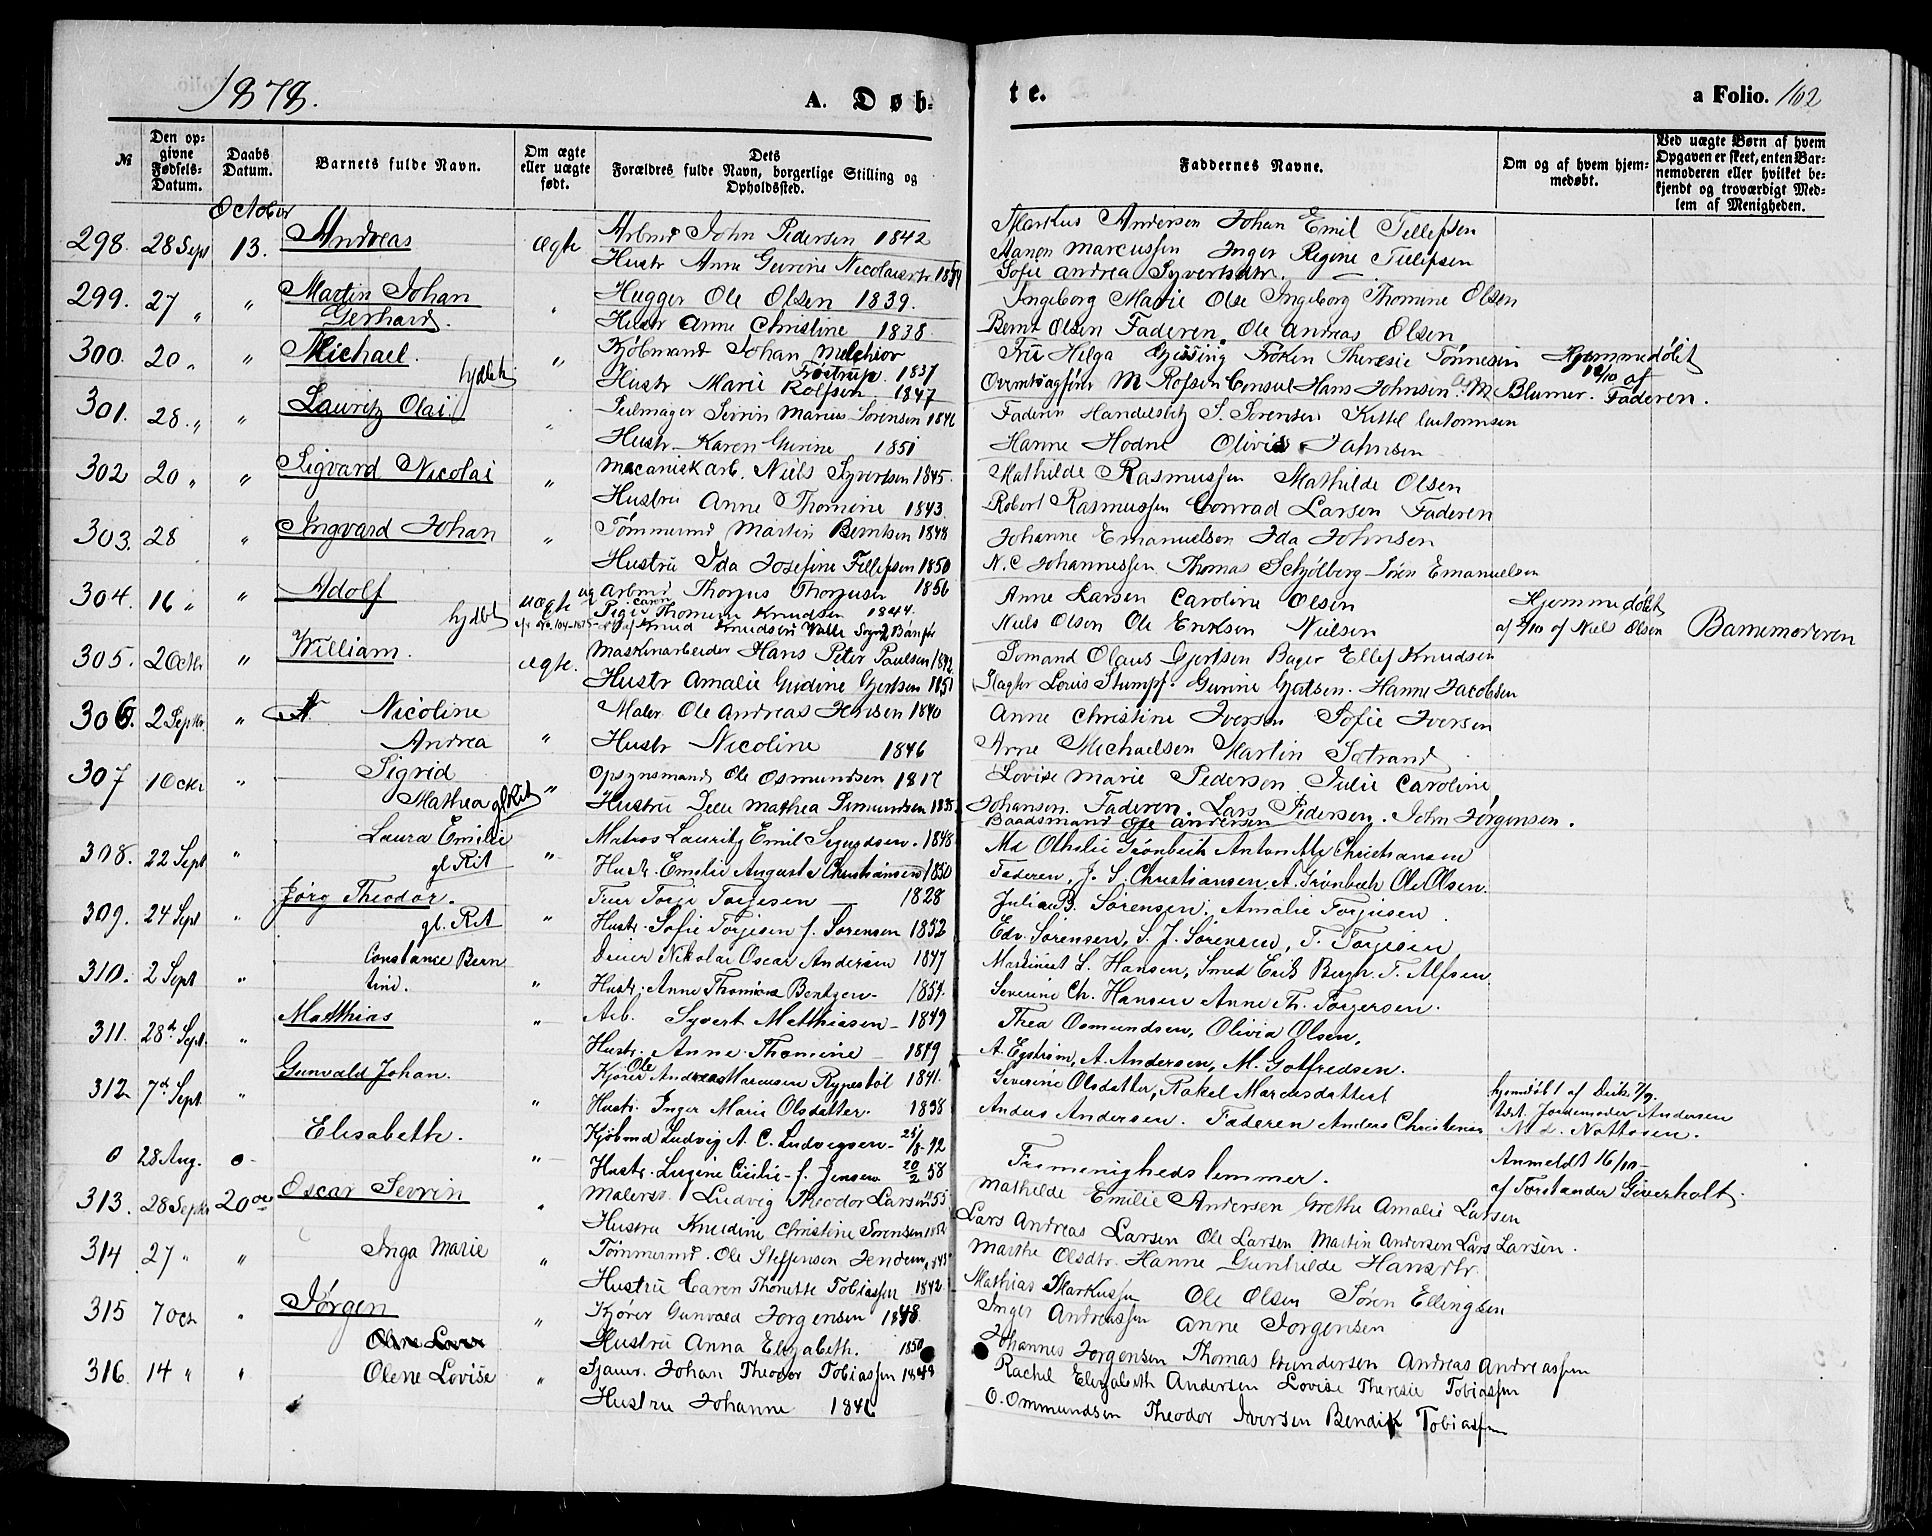 1878.
A. Døb-
te.
a Folio. 162
№
Den opgivne Fødsels-Datum.
Daabs Datum.
Barnets fulde Navn.
Om ægte eller uægte født.
Dets Forældres fulde Navn, borgerlige Stilling og Opholdssted.
Faddernes Navne.
Om og af hvem hjemmedøbt.
Ved uægte Børn af hvem Opgaven er skeet, enten Barnemoderen eller hvilket bekjendt og troværdigt Medlem af Menigheden.
October
298. 28 Sept 13. Andreas ægte Arbmd John Pedersen 1842 Markus Andersen Johan Emil Tellefsen
Hustr Anne Gurine Nicolaisdtr Aanon Marcussen Inger Regine Tellefsen
Sofie Andrea Syvertsdtr.
299. 27 " " Martin Johan Gerhard. " Hugger Ole Olsen 1839. Ingeborg Marie Olse Ingeborg Thomine Olsen
Hustr Anne Christine 1838 Bernt Olsen Faderen. Ole Andreas Olsen
300. 20 " " Michael. hjdbt " Kjøbmand Johan Melchior Frostrup 1837 Fru Helga Gjessing Frøken Theresie Tønnesen Hjemmedøbt
Hustr Marie Rolfsen 1847 M Rofsen Consul Hans Johnsen M Blumer. 12/10 af Faderen.
301. 28 " " Lauritz Olai. " Seilmager Servin Marius Sørensen 1846 Faderen Handelsbtj S. Sørensen Kittel
Hustr Karen Gurine 1851 Hanne Hodne Olivia Jahnsen
302 20 " " Sigvard Nicolai " Mecaniskarb. Niels Syvertsen 1845. Mathilde Rasmussen Mathilde Olsen
Hustru Anne Thomine 1843. Robert Rasmussen Conrad Larsen Faderen
303. 28 " Ingvard Johan " Tømmermd Martin Berntsen 1848 Johanne Emanuelsen Ida Johnsen
Hustru Ida Josefine Tellefsen 1850 N. C Johannessen. Thomas Schjölberg Sören Emanuelsen
304. 16 " " Adolf hjdbt uægte Arbmd Thorjus Thorjusen 1856 Anne Larsen Caroline Olsen Hjemmedøbt
Pige Thomine Knudsen 1844. Niels Olsen Ole Eriksen Nielsen af Niels Olsen Barnemoderen
Knud Knudsen
305. 2 Octr " William. ægte. Maskinarbeider Hans Peter Paulsen Sømand Olaus Gjertsen Bager Ellef Knudsen
Hustr Amalie Gudine Gjertsen 1851 Slagter Louis Stumpf. Gurine Gjertsen. Hanne Jacobsen
306. 2 Septr. " Nicoline Andrea " Maler Ole Andreas Iversen 1840 Anne Christine Iversen Sofie Iversen
Hustr Nicoline 1846 Arne Michaelsen Martin Sætrand
307 1 Octr " Sigrid Mathea gl. Rit " Opsynsmand Ole Osmundsen 1817 Lovise Marie Pedersen Julie Caroline
Hustru Mathea 1835 Johansen Faderen. Lars Pedersen. John Jørgensen.
Baadsmand Ole Andersen
308. 22 Sept " Laura Emilie gl. Rit " Matros Lauritz Emil Sigurdsen. 1848 Md Othelie Grønbech Anton My Christiansen
Hustr. Emelie Augusta Christiansen 1850 Faderen, J. S. Christiansen, A. Grønbech Ole Olsen.
309. 24 Sept " Jørg Theodor. gl. Rit " Torje Torjesen - 1828 Julia B. Sørensen. Amalie Torjusen.
Hustr. Sofie Torjesen f. Sørensen 1852 Edv. Sørensen, S. J. Sørensen, T. Torjesen
310. 2 Sept " Constance Berntine. " Dreier Nikolai Oscar Andersen 1847 L. Hansen, Smed Erik Bergh. T. Alfsen.
Hustr. Anne Thomine Bentzen - 1854. Severine Ch. Hansen Anne Th. Torgersen.
311. 28d Sept. " Matthias " Arb. Syvert Matthiasen - 1849 Thea Osmundsen, Olivia Olsen,
Hustr. Anne Thomine - 1849 A. Egstrøm, A. Andersen, M. Gotfredsen.
312 7d Sept " Gunvald Johan. " Kjører Ole Andreas Marcusen Rypestöl 1841. Severine Olsdatter, Rakel Marcusdatter hjemdöbt af Distr. 7/9.
Hustr. Inger Marie Olsdatter. 1838 Anders Andersen. Faderen Anders Christensen Jordemoder Andersen
0 28 Aug. 0 - Elisabeth. " Kjöbmd Ludvig A. C. Ludvigsen - Md. Nottosen.
Hustr. Lugine Cicilie f. Jensen 20/2 58 Frimenighedslemmer. Anmeldt 16/10 -
af Forstander Geverholt.
313. 28 Septr 20 oct Oscar Sevrin " Malers. Ludvig Theodor Larsen 55 Mathilde Emilie Andersen Grethe Amalie Larsen
Hustru Knudine Christine Sørensen Lars Andreas Larsen Ole Larsen Martin Andersen Lars Larsen.
314 27 " " Inga Marie " Tømmermd. Ole Steffensen Marthe Olsdtr. Hanne Gunhilde Hansdtr.
Hustru Caren Thonette Tobiassen 1842 Mathias Markussen Ole Olsen Sören Ellingsen
315 7 Oct " Jørgen " Kjører Gunvald Jørgensen 1848. Inger Andreassen Anne Jorgensen
Hustru Anna Elizabeth. 1850 Johannes Jorgensen Thomas Gundersen Andreas Andreassen
316. 14 " " Olene Lovise " Sjauer. Johan Theodor Tobiassen 1848 Rachel Elizabeth Andersen Lovise Theresie Tobiassen
Hustru Johanne 1846 O. Ommundsen Theodor Iversen Bendik Tobiassen